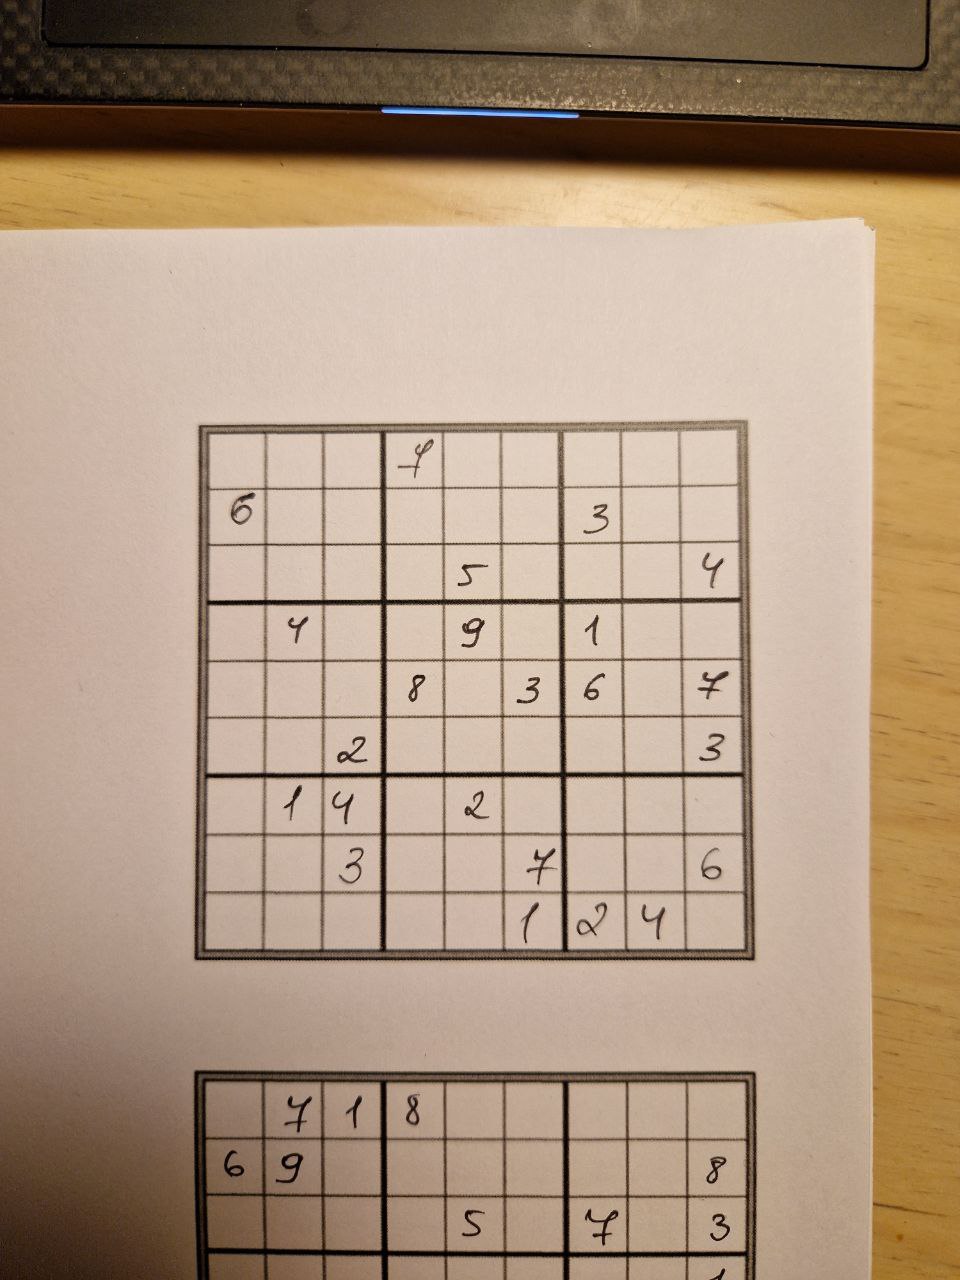 7
6 3
5 4
4 9 1
8 3 6 7
2 3
1 4 2
3 7 6
1 2 4
7 1 8
6 9 8
5 7 3